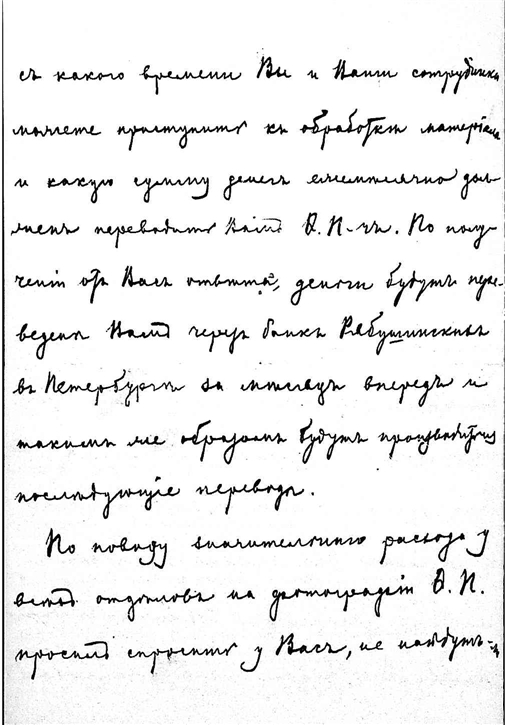 съ какого времени Вы и Ваши сотрудники
можете приступить къ обработкѣ матеріала
и какую сумму денегъ ежемѣсячно дол-
женъ переводить Вамъ Ѳ. П-чъ. По полу-
ченіи отъ Васъ отвѣта, деньги будутъ пере-
ведены Вамъ черезъ банкъ Рябушинскихъ
въ Петербургѣ за мѣсяцъ впередъ и
такимъ же образомъ будутъ производиться
послѣдующіе переводы.
По поводу значительнаго расхода у
всѣхъ отдѣловъ на фотографіи Ѳ. П.
просилъ спросить у Васъ, не найдутъ-ли